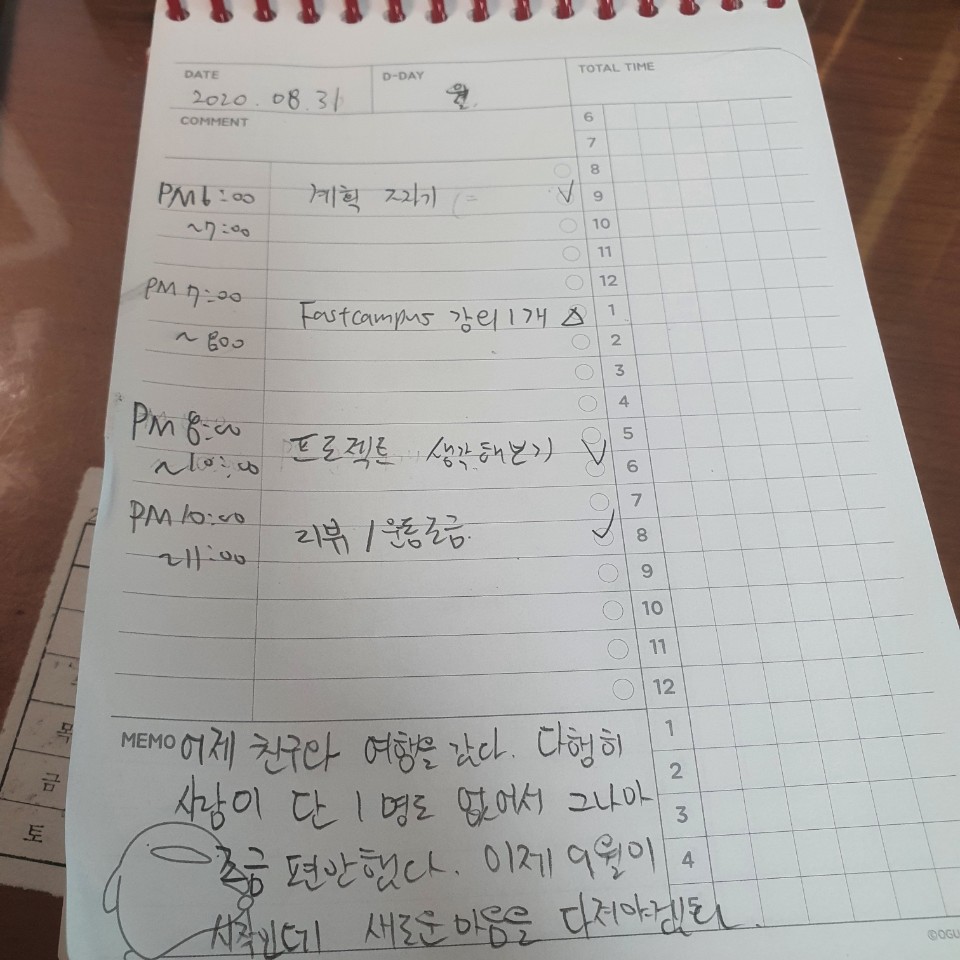 DATE
2020.08.31
D-DAY
월.
TOTAL TIME
COMMENT
PM 6:00 계획 짜기
~7:00
PM 7:00
Fastcampus 강의 1개
~8:00
PM 8:00
프로젝트 생각해보기
~10:00
PM 10:00
리뷰 / 운동조금.
~11:00
6
7
8
9
10
11
12
1
2
3
4
5
6
7
8
9
10
11
12
1
2
3
4
MEMO 어제 친구와 여행을 갔다. 다행히
사람이 단 1명도 없어서 그나마
조금 편안했다. 이제 9월이
시작인데 새로운 마음을 다져야겠다.
목
금
토
©OGU